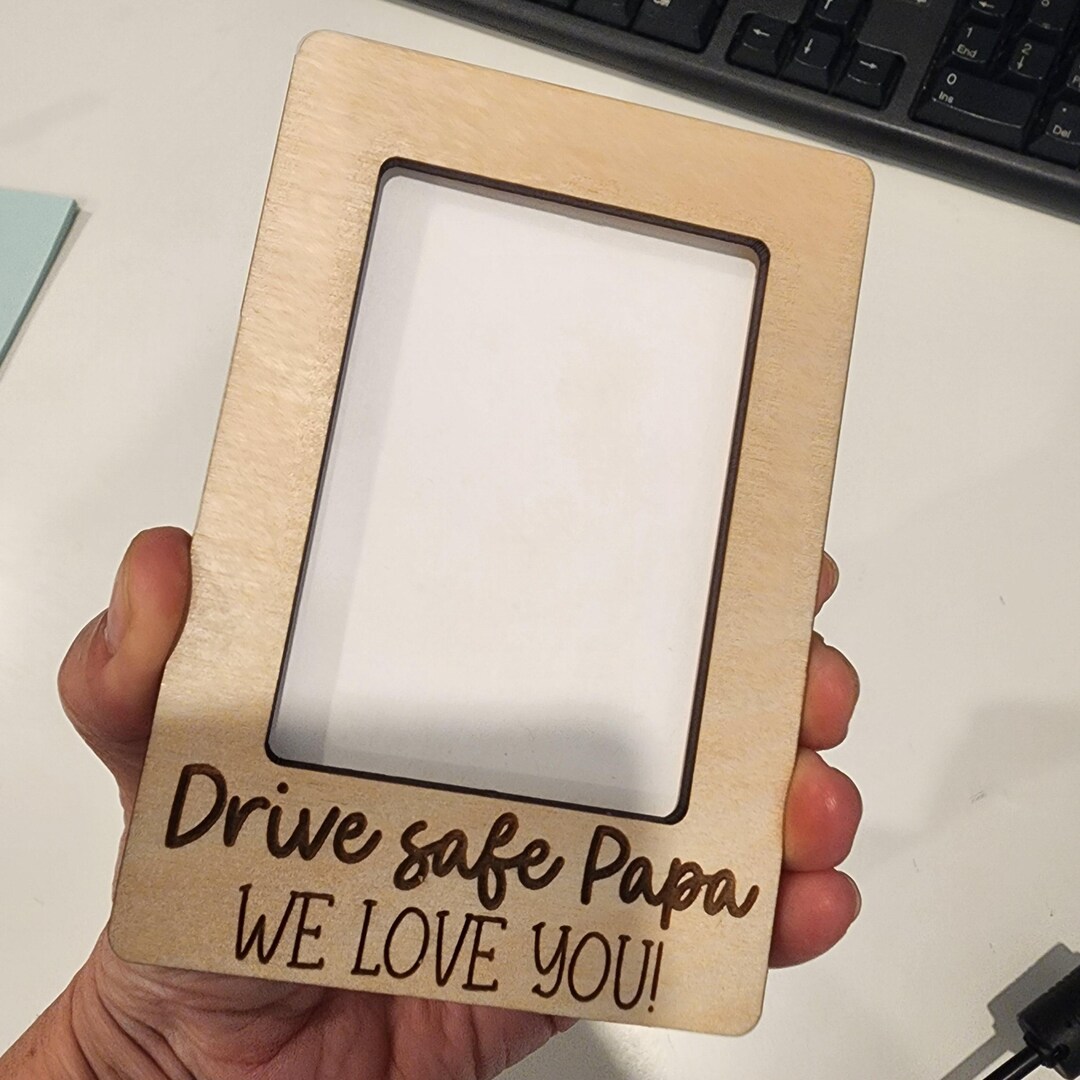 Ctrl
1
End
2
0
Ins
Del
Drive safe Papa
WE LOVE YOU!